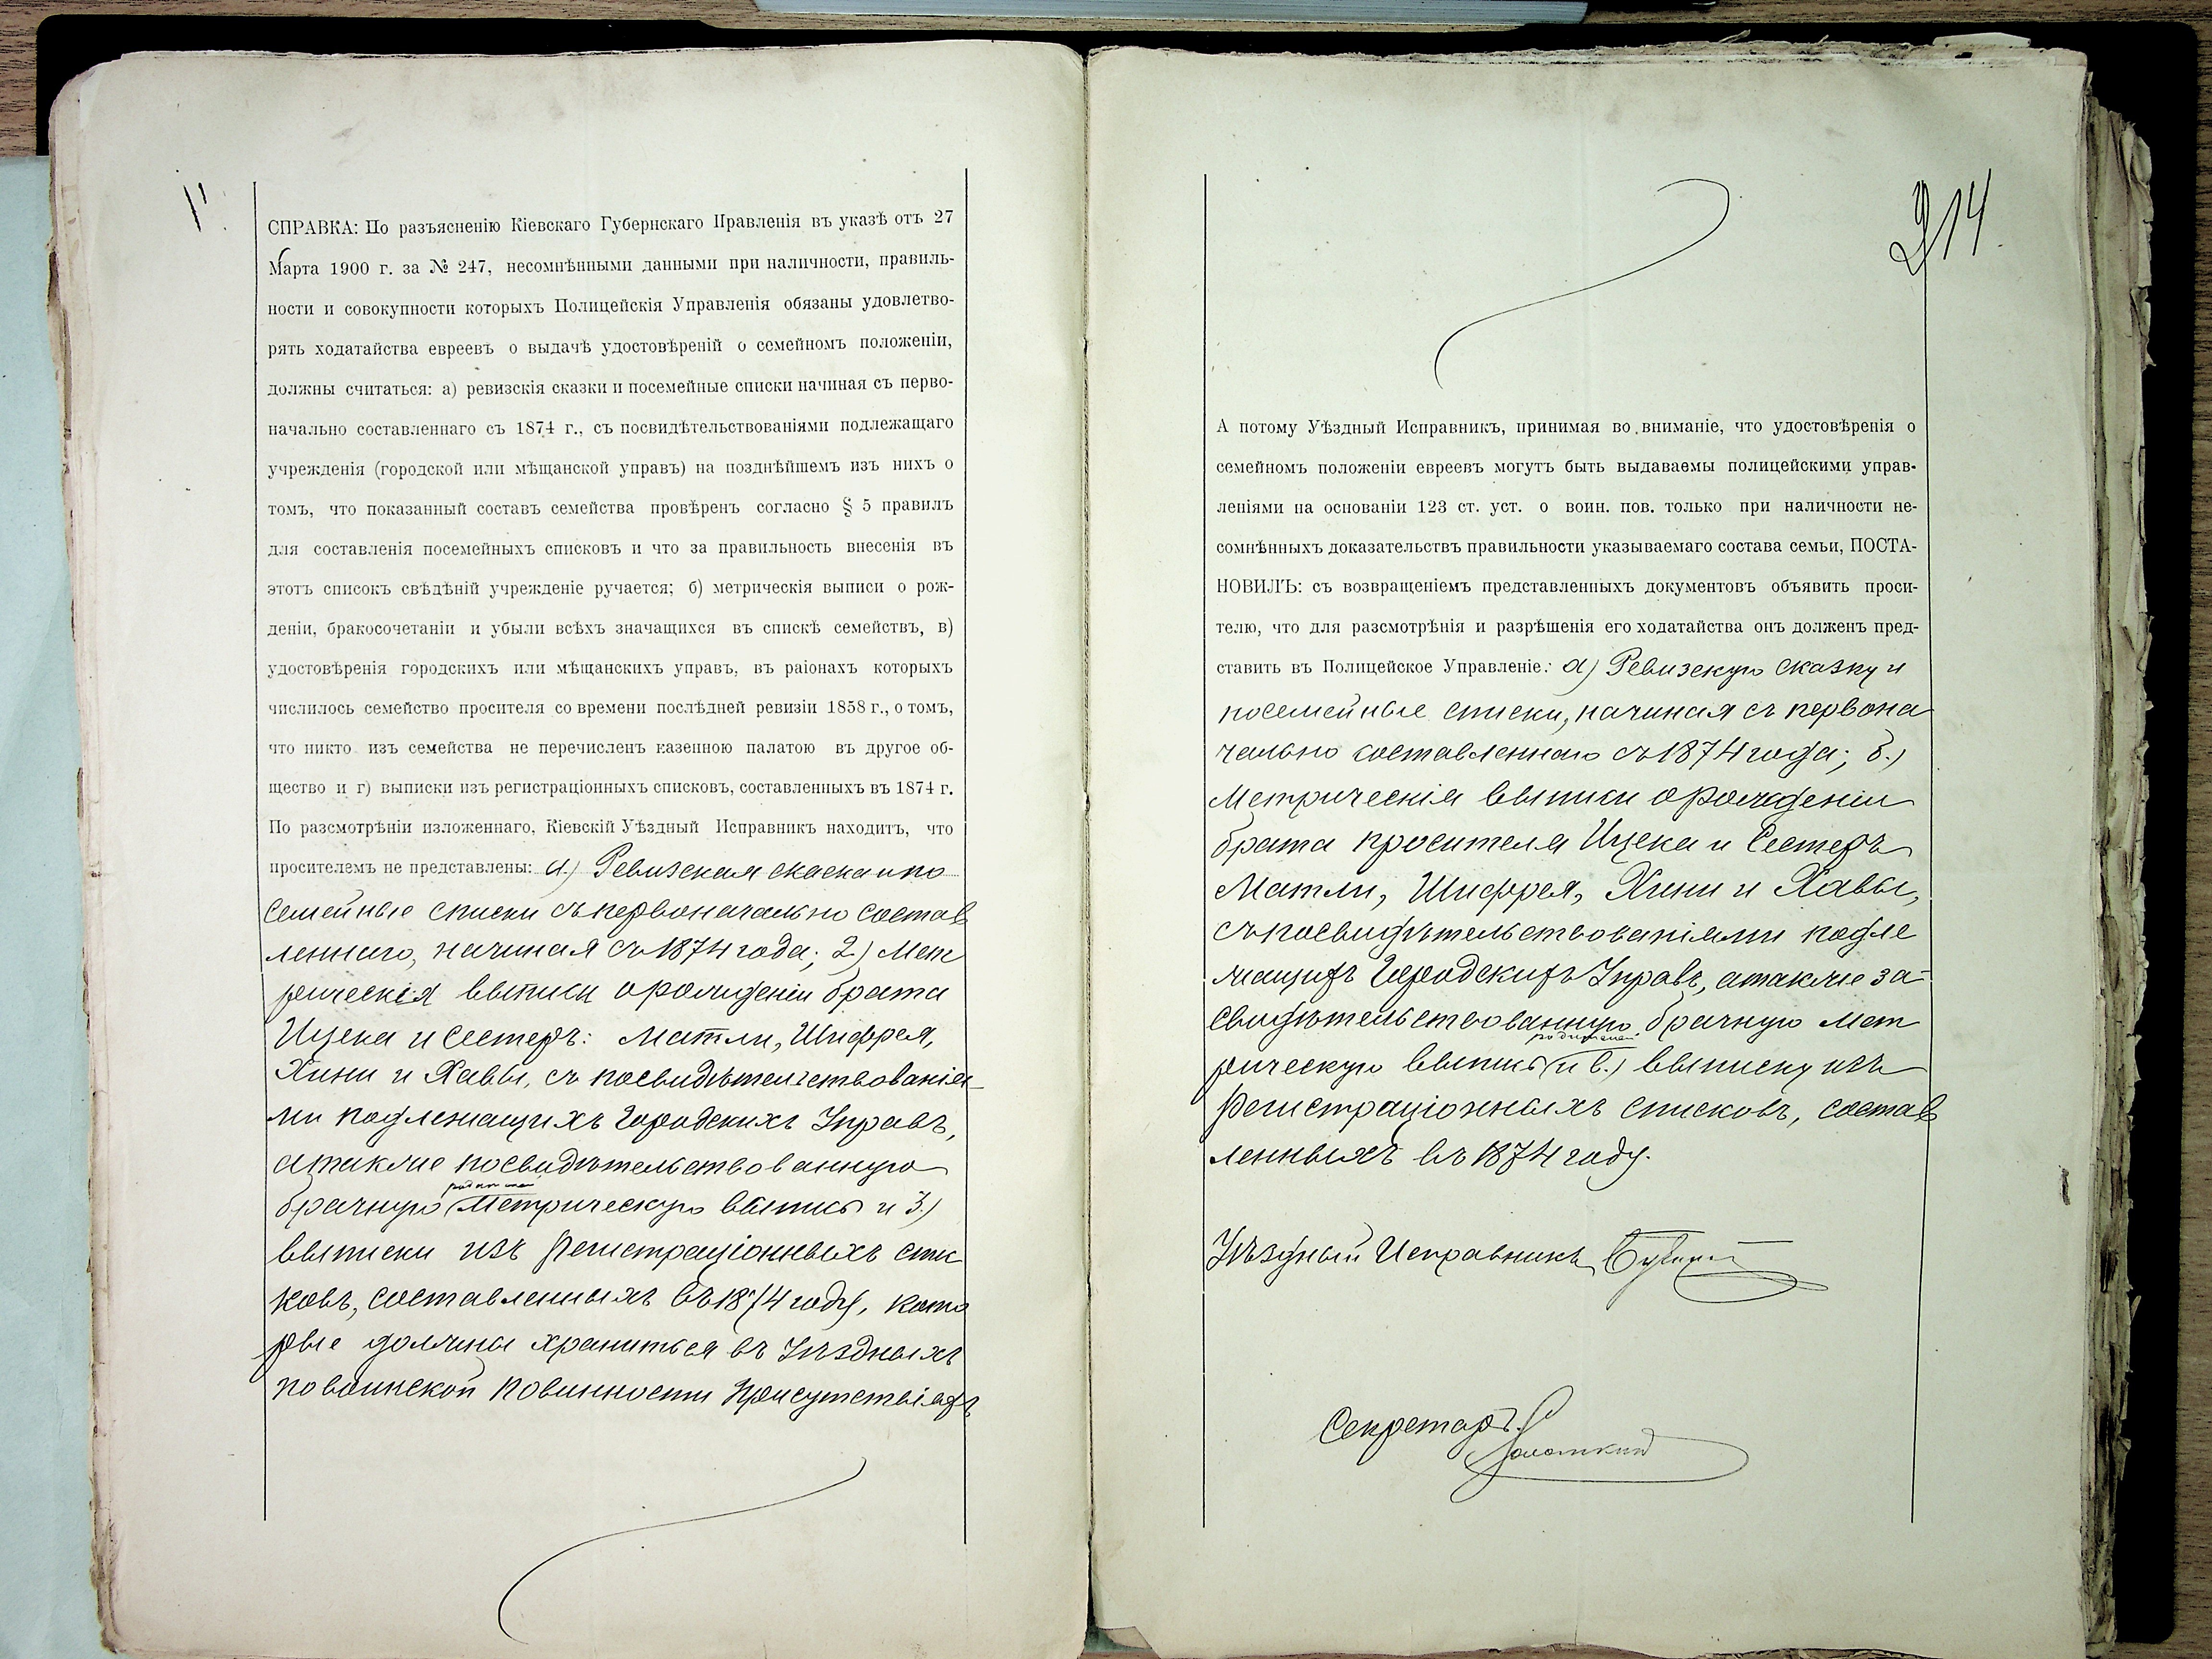 СПРАВКА: По разъясненію Кіевскаго Губернскаго Правленія въ указѣ отъ 27
Марта 1900 г. за № 247, несомнѣнными данными при наличности, правиль-
ности и совокупности которыхъ Полицейскія Управленія обязаны удовлетво-
рять ходатайства евреевъ о выдачѣ удостовѣреній о семейномъ положеніи,
должны считаться: а) ревизскія сказки и посемейные списки начиная съ перво-
начально составленнаго съ 1874 г., съ посвидѣтельствованіями подлежащаго
учрежденія (городской или мѣщанской управъ) на позднѣйшемъ изъ нихъ о
томъ, что показанный составъ семейства провѣренъ согласно § 5 правилъ
для составленія посемейныхъ списковъ и что за правильность внесенія въ
этотъ списокъ свѣдѣній учрежденіе ручается; б) метрическія выписи о рож-
деніи, бракосочетаніи и убыли всѣхъ значащихся въ спискѣ семействъ, в)
удостовѣренія городскихъ или мѣщанскихъ управъ, въ раіонахъ которыхъ
числилось семейство просителя со времени послѣдней ревизіи 1858 г., о томъ,
что никто изъ семейства не перечисленъ казенною палатою въ другое об-
щество и г) выписки изъ регистраціонныхъ списковъ, составленныхъ въ 1874 г.
По разсмотрѣніи изложеннаго, Кіевскій Уѣздный Исправникъ находитъ, что
просителемъ не представлены: а.) Ревизская скаска и по
семейные списки съ первоначально состав
леннаго, начиная съ 1874 года; 2.) Мет
рическія выписи о рожденіи брата
Ицека и сестеръ: Матли, Шифрея,
Хини и Хавы, съ посвидѣтельствованія-
ми подлежащихъ Городскихъ Управъ,
а также посвидѣтельствованную
брачную родителей Метрическую выпись и 3.)
выписки изъ регистраціонныхъ спис
ковъ, составленныхъ въ 1874 году, кото
рые должны храниться въ Уѣздныхъ
по воинской повинности Присутствіяхъ
214
А потому Уѣздный Исправникъ, принимая во вниманіе, что удостовѣренія о
семейномъ положеніи евреевъ могутъ быть выдаваемы полицейскими управ-
леніями на основаніи 123 ст. уст. о воин. пов. только при наличности не-
сомнѣнныхъ доказательствъ правильности указываемаго состава семьи, ПОСТА-
НОВИЛЪ: съ возвращеніемъ представленныхъ документовъ объявить проси-
телю, что для разсмотрѣнія и разрѣшенія его ходатайства онъ долженъ пред-
ставить въ Полицейское Управленіе: а) Ревизскую сказку и
посемейные списки, начиная съ первона
чально составленнаго съ 1874 года; б.)
Метрическія выписи о рожденіи
брата просителя Ицека и Сестеръ
Матли, Шифрея, Хини и Хавы,
съ посвидѣтельствованіями подле
жащихъ Городскихъ Управъ, а также за-
свидѣтельствованную брачную Мет
рическую выпись родителей и в.) выписку изъ
регистраціонныхъ списковъ, состав
ленныхъ въ 1874 году.
Уѣздный Исправникъ
Секретарь